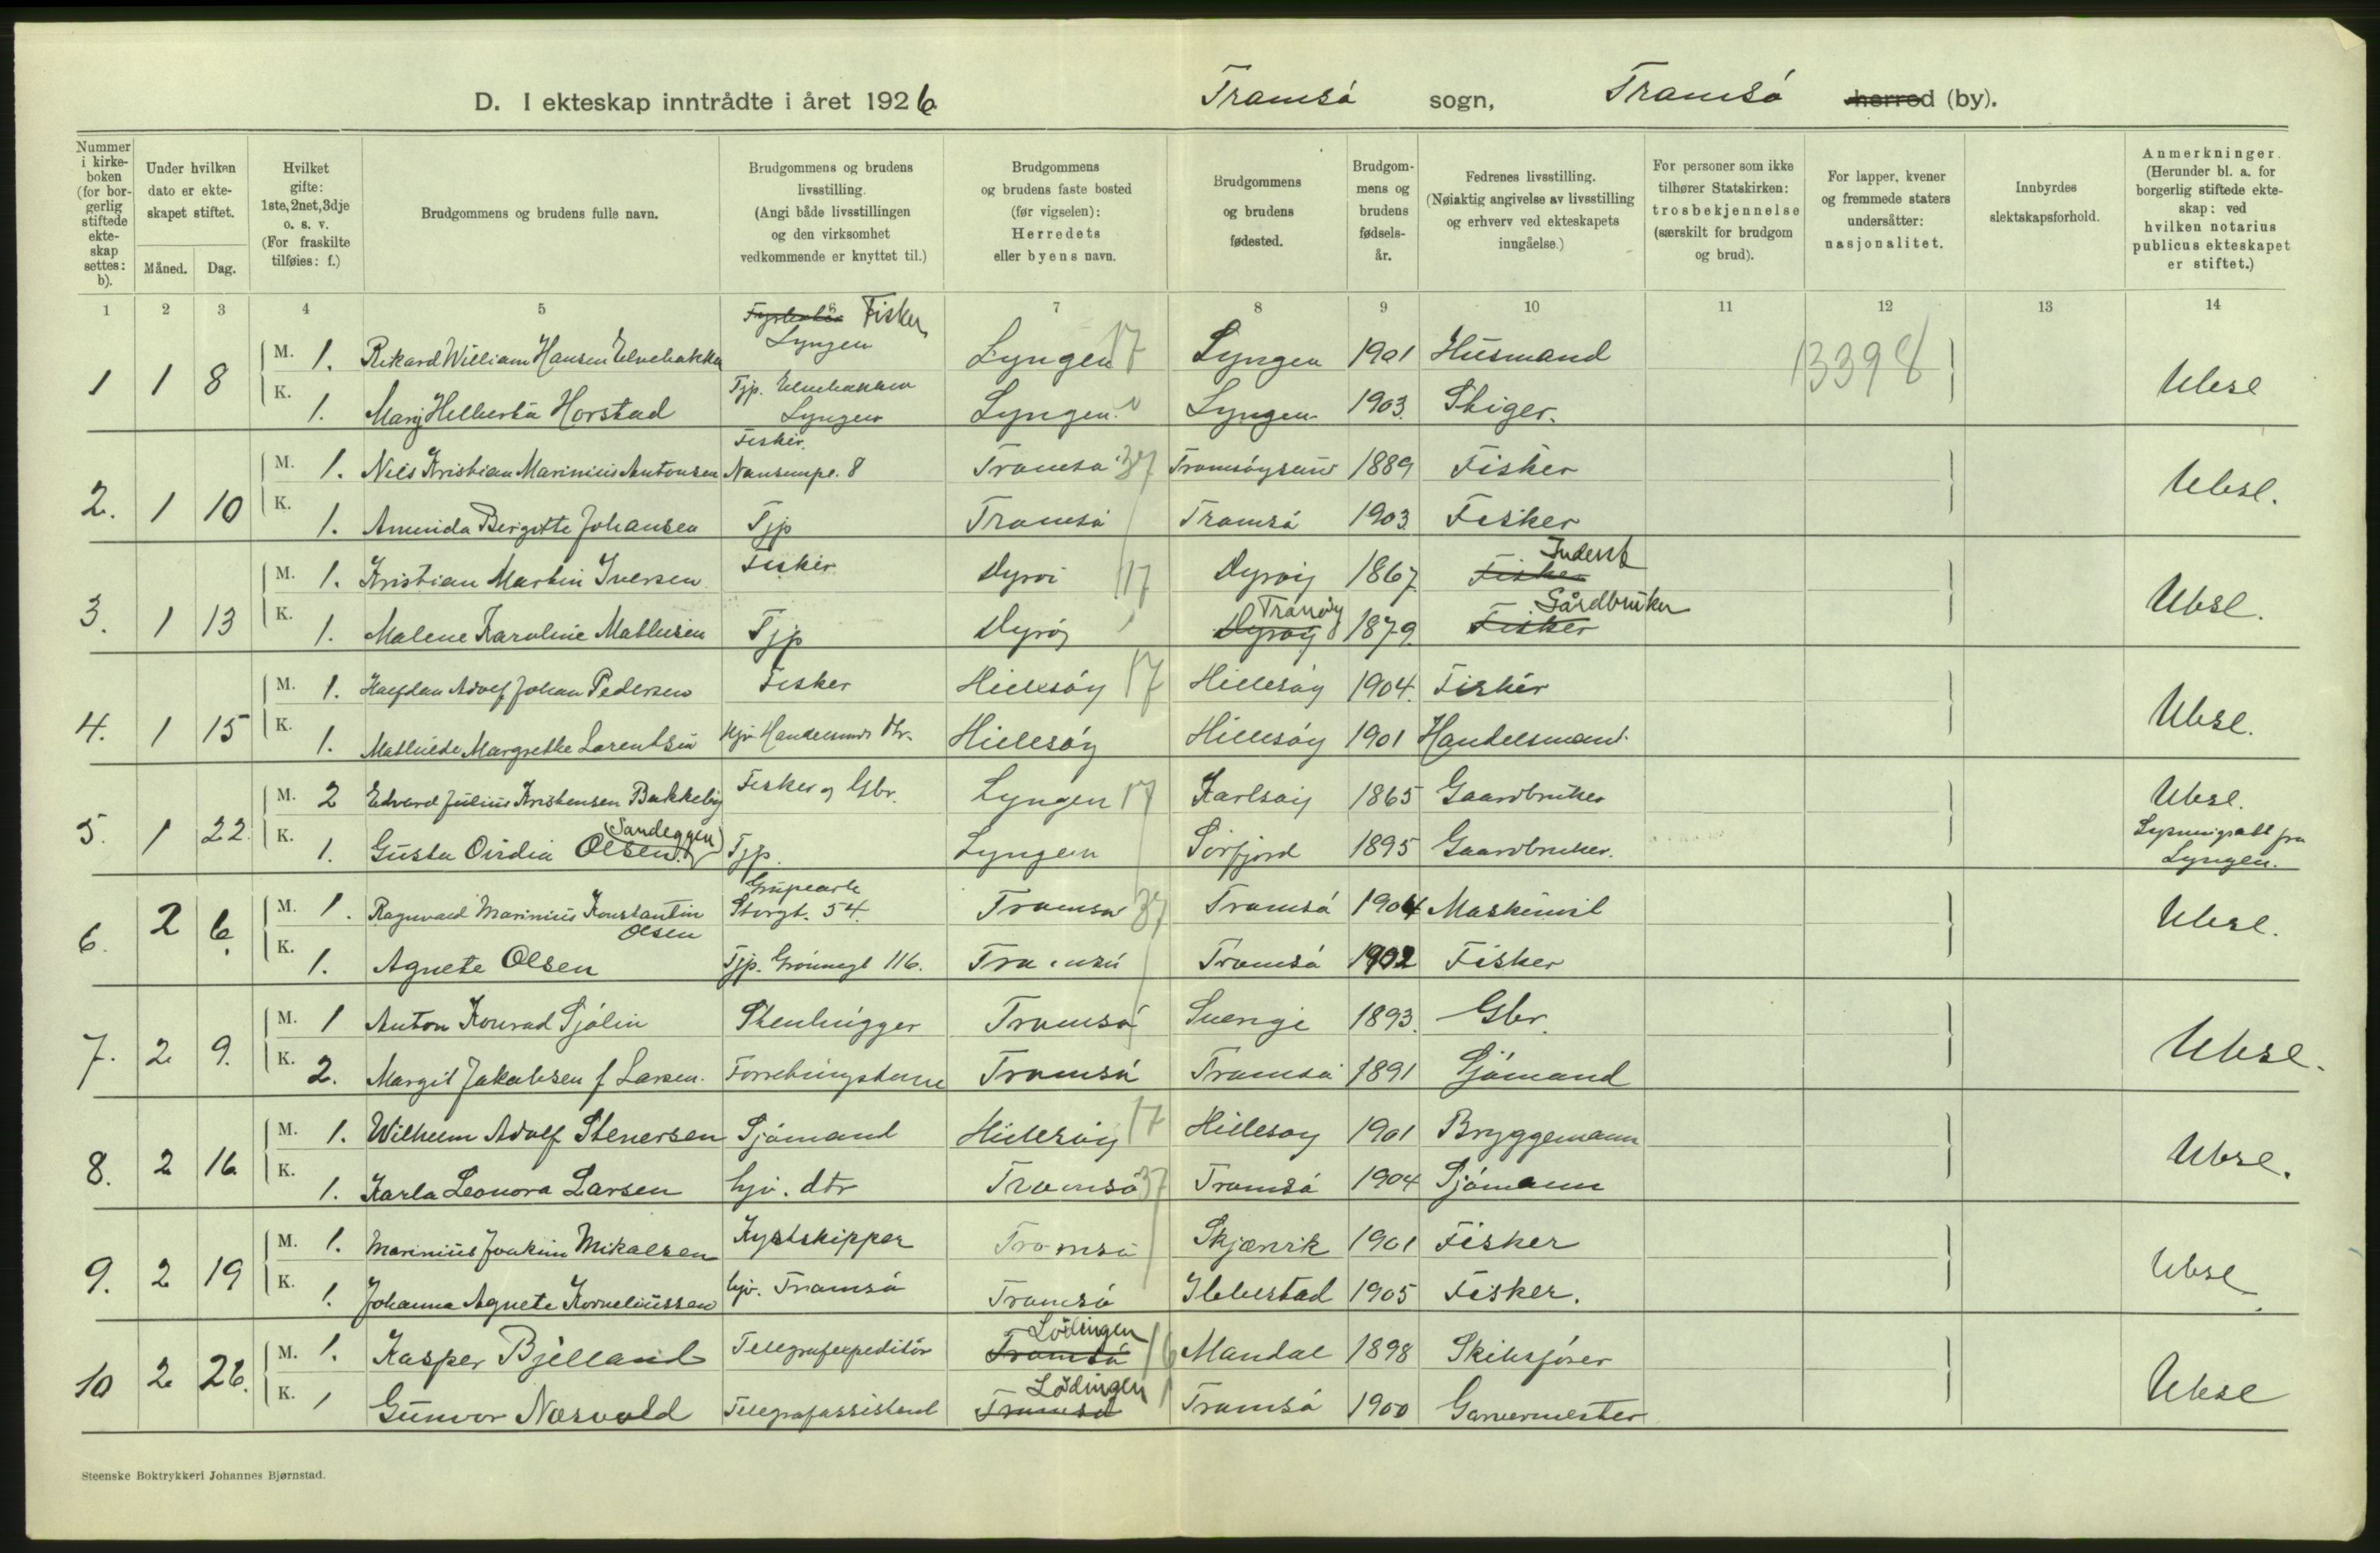 D. I ekteskap inntrådte i året 1926 Tromsö sogn, Tromsö herred (by).
Nummer i kirke-boken (for bor-gerlig stiftede ekte-skap settes: b).
Under hvilken dato er ekte-skapet stiftet.
Måned. Dag.
Hvilket gifte: 1ste, 2net, 3dje o. s. v. (For fraskilte tilføies: f.)
Brudgommens og brudens fulle navn.
Brudgommens og brudens livsstilling. (Angi både livsstillingen og den virksomhet vedkommende er knyttet til.)
Brudgommens og brudens faste bosted (før vigselen): Herredets eller byens navn.
Brudgommens og brudens fødested.
Brudgom-mens og brudens fødsels-år.
Fedrenes livsstilling. (Nøiaktig angivelse av livsstilling og erhverv ved ekteskapets inngåelse.)
For personer som ikke tilhører Statskirken: trosbekjennelse (særskilt for brudgom og brud).
For lapper, kvener og fremmede staters undersåtter: nasjonalitet.
Innbyrdes slektskapsforhold.
Anmerkninger. (Herunder bl. a. for borgerlig stiftede ekte-skap: ved hvilken notarius publicus ekteskapet er stiftet.)
1 2 3 4 5 6 7 8 9 10 11 12 13 14
Fisker
1 1 8 M. 1. Rikard William Hansen Elvebakken Lyngen Lyngen 17 Lyngen 1901 Husmand 13398 Ubsl
K. 1. Mary Helberta Horstad Tjp. Elvebakken Lyngen Lyngen Lyngen 1903. Stiger.
2. 1 10 M. 1. Nils Kristian Marinius Antonsen Fisker Nansenpl. 8 Tromsö 37 Tromsöysund 1889 Fisker Ubsl.
K. 1. Amunda Bergitte Johansen Tjp Tromsö Tromsö 1903 Fisker
3. 1 13 M. 1. Kristian Martin Iversen Fisker Dyröi 17 Dyröiy 1867 Fisker Inderst Ubsl.
K. 1. Malene Karoline Mathisen Tjp Dyröy Dyröy Tranöy 1879. Fisker Gårdbruker
4. 1 15 M. 1. Halfdan Adolf Johan Pedersen Fisker Hillesöy 17 Hillesöy 1904. Fisker Ubsl.
K. 1. Mathilde Margrethe Lorentsen Hjv. Handelsmds dtr. Hillesöy Hillesöy 1901 Handelsmand.
5. 1 22. M. 2 Edvard Julius Kristensen Bakkeby Fisker og Gbr. Lyngen 17 Karlsöiy 1865 Gaardbruker Ubsl.
K. 1. Gusta Ovidia Olsen (Sandeggen) Tjp. Lyngen Sörfjord 1895 Gaardbruker. Lysningsatt fra Lyngen.
6. 2 6. M. 1. Ragnvald Marinius Konstantin Olsen Storgt. 54. Tromsö 37 Tromsö 1904 Maskinist Ubsl.
K. 1. Agnete Olsen Tjp. Grönnegt 116. Tromsö Tromsö 1902 Fisker
7. 2 9. M. 1 Anton Konrad Sjölin Stenhugger Tromsö Sverige 1893. Gbr. Ubsl.
K. 2. Margit Jakobsen f Larsen. Forretningsdame Tromsö Tromsö 1891 Sjömand
8. 2 16 M. 1. Wilhelm Adolf Stenersen Sjömand Hillesöy 17 Hillesoy 1901 Bryggemann Ubsl.
K. 1. Karla Leonora Larsen hjv. dtr Tromsö 37 Tromsö 1904 Sjömann
9. 2 19 M. 1. Marinius Joakim Mikalsen Kystskipper Tromsö Skjærvik 1901 Fisker Ubsl.
K. 1. Johanna Agnete Korneliussen hjv. Tromsö Tromsö Ibbestad 1905 Fisker.
10 2 26. M. 1. Kasper Bjelland Telegrafexpeditör Tromsö Lödingen 16 Mandal 1898 Skibsfører Ubsl
K. 1 Gunvor Norvold Telegrafassistent Tromsö Lödingen Tromsö 1900 Garvermester
Steenske Boktrykkeri Johannes Bjørnstad.